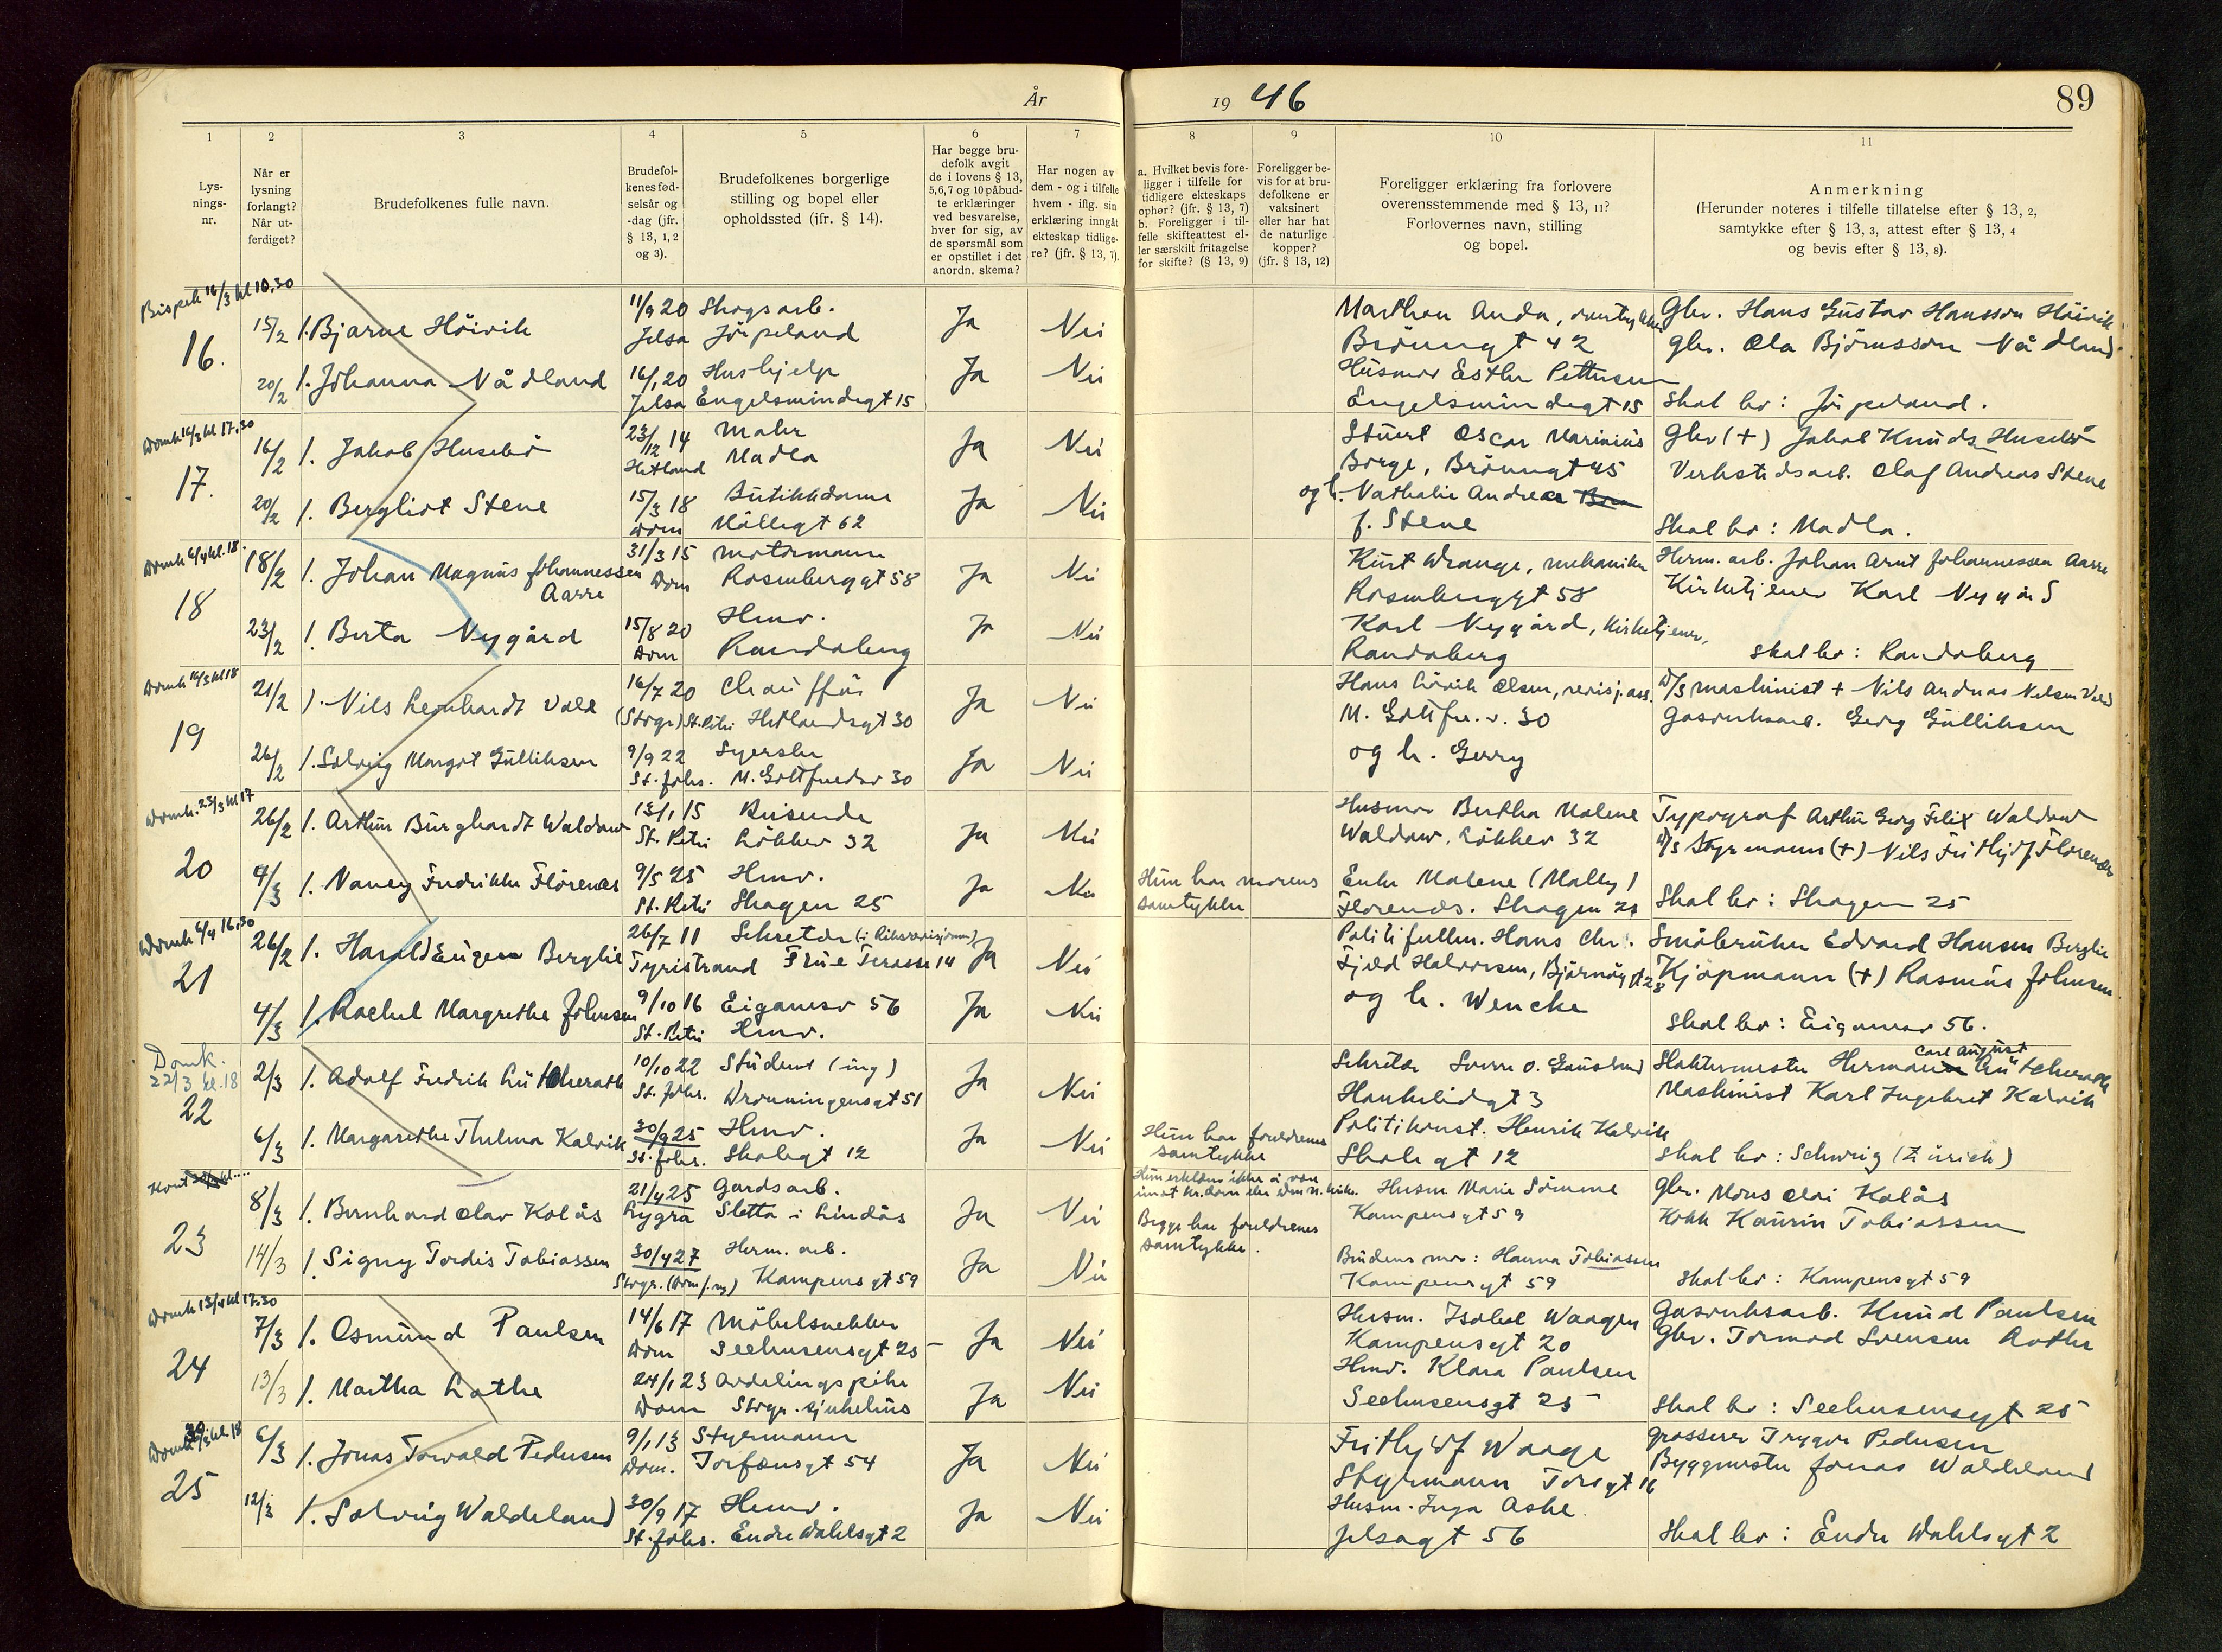 År 19 46 89
1 2 3 4 5 6 7 8 9 10 11
Lys-
nings-
nr.
Når er
lysning
forlangt?
Når ut-
ferdiget?
Brudefolkenes fulle navn.
Brudefol-
kenes fød-
selsår og
-dag (jfr.
§ 13, 1, 2
og 3).
Brudefolkenes borgerlige
stilling og bopel eller
opholdssted (ifr. § 14).
Har begge bru-
defolk avgit
de i lovens § 13,
5,6,7 og 10 påbud-
te erklæringer
ved besvarelse,
hver for sig, av
de spørsmål som
er opstillet i det
anordn. skema?
Har nogen av
dem - og i tilfelle
hvem - iflg. sin
erklæring inngått
ekteskap tidlige-
re? (jfr. § 13, 7).
a. Hvilket bevis fore-
ligger i tilfelle for
tidligere ekteskaps
ophør? (jfr. § 13, 7)
b. Foreligger i til-
felle skifteattest el-
ler særskilt fritagelse
for skifte? (§ 13, 9)
Foreligger be-
vis for at bru-
defolkene er
vaksinert
eller har hat
de naturlige
kopper?
(jfr. § 13, 12)
Foreligger erklæring fra forlovere
overensstemmende med § 13, 11?
Forlovernes navn, stilling
og bopel.
Anmerkning
(Herunder noteres i tilfelle tillatelse efter § 13, 2,
samtykke efter § 13, 3, attest efter § 13, 4
og bevis efter § 13, 8).
Bispek 16/3 kl 10,30
16.
15/2 1. Bjarne Høivik 11/9 20 Skogsarb. Ja Nei Marthon Anda, Gbr. Hans Gustav Hansson Høivik
Jelsa Jørpeland Brønngt 42 gbr. Ola Bjørnsson Vådland
20/2 1. Johanna Vådland 16/1 20 Hushjelp Ja Nei Husmor Esther Pettersen
Jelsa Engelsmindegt 15 Engelsmindegt 15 Skal bo: Jørpeland.
Domk 16/3 kl 17,30
17.
16/2 1. Jakob Husebø 23/12 14 Maler Ja Nei Stuert Oscar Marinius Gbr (+) Jakob Knuds. Husebø
Hetland Madla Borge, Brønngt 45 Verkstedsarb. Olaf Andreas Stene
20/2 1. Bergliot Stene 15/3 18 Butikkdame Ja Nei og h. Nathalie Andrea
Dom Møllegt 62 f. Stene Skal bo: Madla.
Domk 6/4 kl. 18.
18
18/2 1. Johan Magnus Johannessen 31/3 15 Motormann Ja Nei Kurt Wrange, mekaniker Herm. arb. Johan Arnt Johannessen Aarre
Aarre Dom Rosenberggt 58 Rosenberggt 58 Kirketjener Karl Nygård
23/2 1. Berta Nygård 15/8 20 Hmv. Ja Nei Karl Nygård, Kirketjener,
Dom Randaberg Randaberg Skal bo: Randaberg
Domk 16/3 kl 18
19
21/2 1. Nils Leonhardt Vold 16/7 20 Chauffør Ja Nei Hans Lövik Olsen, revisj. ass. D/S maskinist + Nils Andreas Nilsen Vold
(Stvgr) St. Petri Hetlandsgt 30 M. Gottfr. v. 30 Gasverksarb. Georg Gulliksen
26/2 1. Solveig Margot Gulliksen 9/9 22 Syerske Ja Nei og h. Gerry
St. Johs. M. Gottfredsv 30
Domk. 23/3 kl 17
20
26/2 1. Arthur Burghardt Waldow 13/1 15 Reisende Ja Nei Husmor Bertha Malene Typograf Arthur Georg Felix Waldow
St. Petri Løkkev 32 Waldow, Løkkev 32 D/S Styrmann (+) Nils Frithjof Florenæs
4/3 1. Nancy Fredrikke Florenæs 9/5 25 Hmv. Ja Nei Hun har morens samtykke Enke Malene (Mally)
St. Petri Skagen 25 Florenæs. Skagen 25 Skal bo: Skagen 25
Domk 6/4 16,30
21
26/2 1. Harald Eugen Berglie 26/7 11 Sekretær (i Riksrevisjonen) Ja Nei Politifullm. Hans Chr. Småbruker Edvard Hansen Berglie
Tyristrand Frue Terasse 14 Fjeld Halvorsen, Bjørnøygt 28 Kjøpmann (+) Rasmus Johnsen
4/3 1. Rachel Margrethe Johnsen 9/10 16 Eiganesv 56 Ja Nei og h. Wenche
St. Petri Hmv. Skal bo: Eiganesv 56.
Domk.
22/3 kl. 18
22
2/3 1. Adolf Fredrik Lütcherath 10/10 22 Student (ing) Ja Nei Sekretær Sverre O. Slaktermester Herman Carl August Lütcherath
St. Johs. Dronningensgt 51 Haukelidgt 3 Maskinist Karl Ingebret Kalvik
6/3 1. Margarethe Thelma Kalvik 30/9 25 Hmv. Ja Nei Hun har foreldrenes samtykke Politikonst. Henrik Kalvik
St. Johs. Skolegt 12 Skolegt 12 Skal bo: Schweiz (Zürich)
23
8/3 1. Bernhard Olav Kolås 21/4 25 Gardsarb. Ja Nei Husm Marie Sømme Gbr. Mons Olai Kolås
Lygra Sletta i Lindås Begge har foreldrenes samtykke. Kampensgt 59 Kokk Kaurin Tobiassen
14/3 1. Signy Tordis Tobiassen 30/4 27 Herm. arb. Ja Nei Brudens mor: Hanna Tobiassen
Stvgr. Kampensgt 59 Kampensgt 59 Skal bo: Kampensgt 59
Domk 13/4 kl 17.30
24
7/3 1. Osmund Paulsen 14/6 17 Møbelsnekker Ja Nei Husm. Isabel Waagen Gasverksarb. Knud Paulsen
Dom Seehusensgt 25 Kampensgt 20 Gbr. Tormod Svensen Lothe
13/3 1. Martha Lothe 24/1 23 Avdelingspike Ja Nei Hmv. Klara Paulsen
Dom Stvgr. sjukehus Seehusensgt 25 Skal bo: Seehusensgt 25
25
6/3 1. Jonas Torvald Pedersen 9/1 13 Styrmann Ja Nei Frithjof Waage Grosserer Trygve Pedersen
Dom. Torfæusgt 54 Styrmann Torsgt 16 Byggmester Jonas Waldeland
12/3 1. Solveig Waldeland 30/9 17 Hmv. Ja Nei Husm. Inga Aske.
St. Johs. Endre Dahlsgt 2 Jelsagt 56 Skal bo: Endre Dahlsgt 2